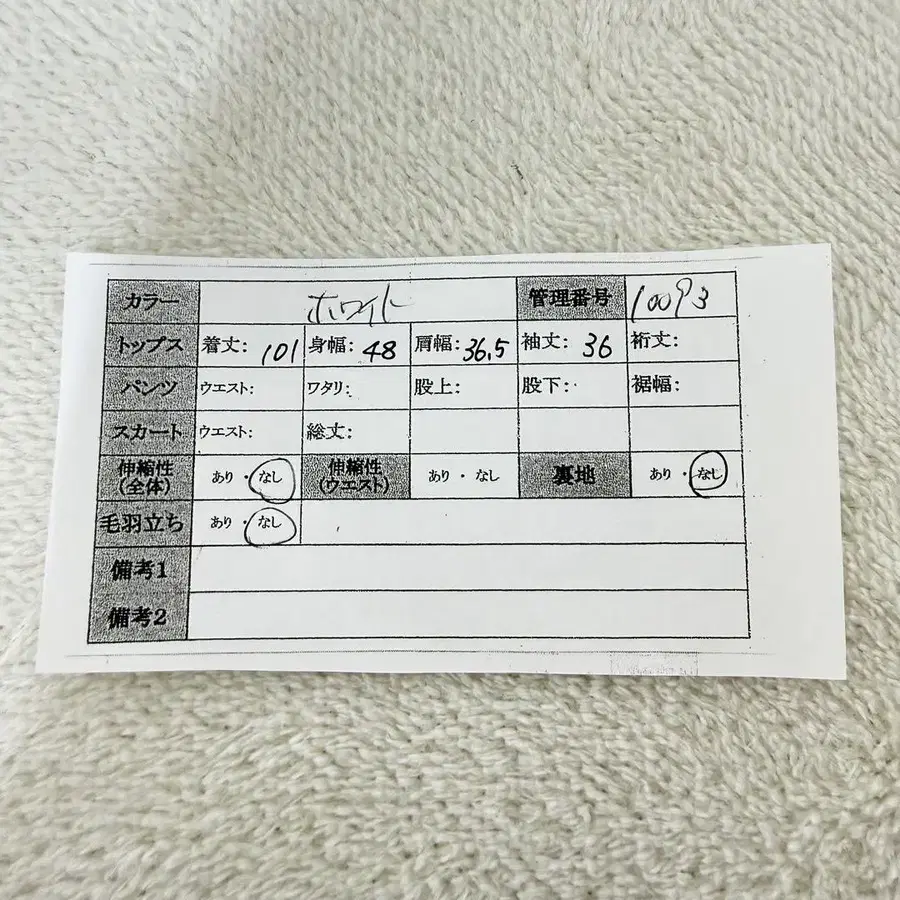 カラー ホワイト 管理番号 10093
トップス 着丈: 101 身幅: 48 肩幅: 36.5 袖丈: 36 裄丈:
パンツ ウエスト: ワタリ: 股上: 股下: 裾幅:
スカート ウエスト: 総丈:
伸縮性 (全体) あり・なし 伸縮性 (ウエスト) あり・なし 裏地 あり・なし
毛羽立ち あり・なし
備考1
備考2